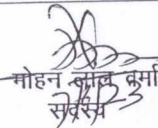 मोहन लाल वर्मा
सदस्य